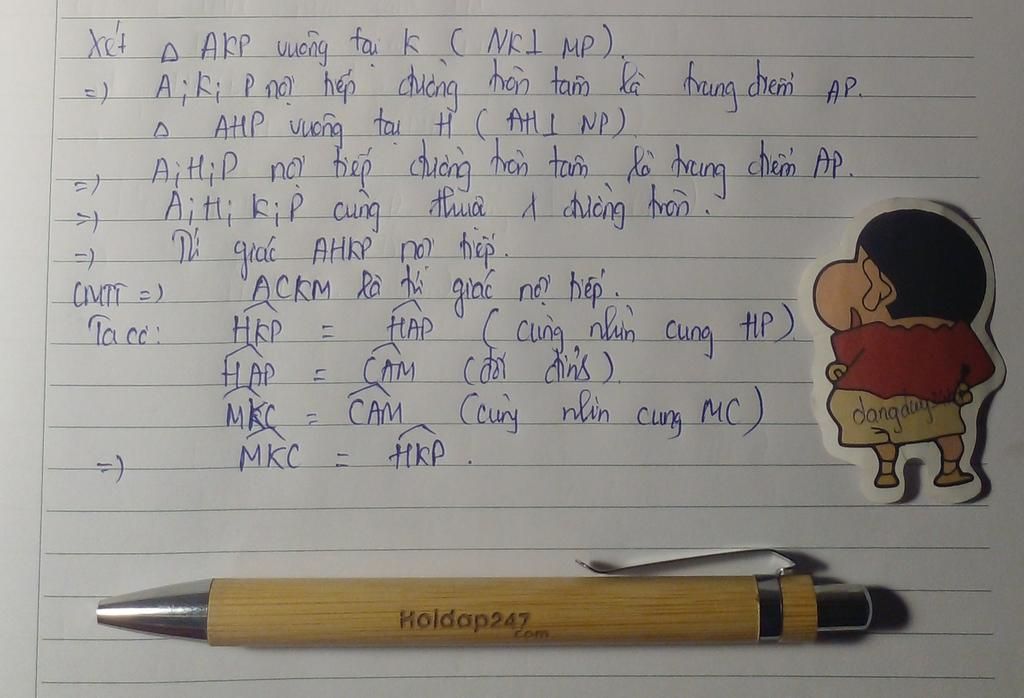 Xét △ AKP vuông tại K ( NK⊥ MP).
=) A; K; P nội tiếp đường tròn tâm là trung điểm AP.
△ AHP vuông tại H ( AH⊥ NP)
=) A; H; P nội tiếp đường tròn tâm là trung điểm AP.
=) A; H; K; P cùng thuộc 1 đường tròn.
=) Tứ giác AHKP nội tiếp.
CMTT =) ACKM là tứ giác nội tiếp.
Ta có: HKP = HAP (cùng nhìn cung HP)
HAP = CAM (đối đỉnh)
MKC = CAM (cùng nhìn cung MC)
=) MKC = HKP.
Hoidap247
.com